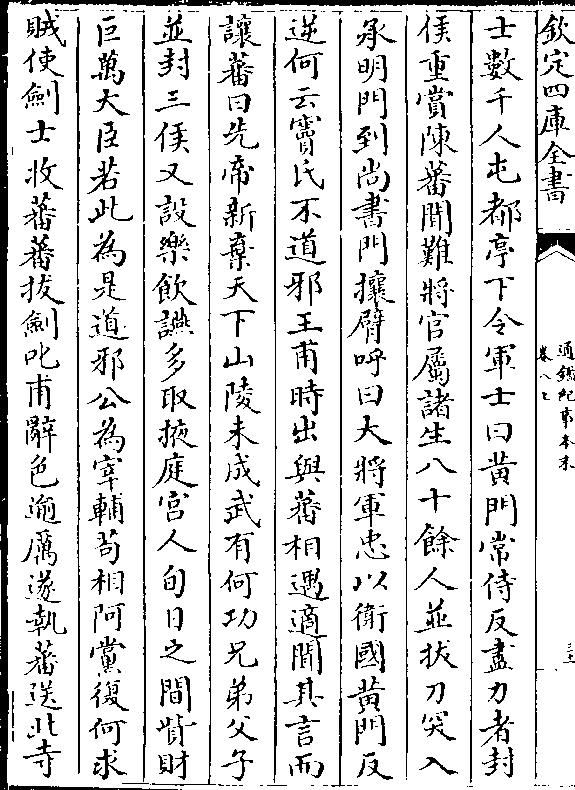 欽定四庫全書
通鑑紀事本末
卷八上
士數千人屯都亭下令軍士曰黄門常侍反盡力者封
侯重賞陳蕃聞難將官屬諸生八十餘人並拔刀突入
承明門到尚書門攘臂呼曰大將軍忠以衛國黄門反
逆何云竇氏不道邪王甫時出與蕃相遇適聞其言而
讓蕃曰先帝新棄天下山陵未成武有何功兄弟父子
並封三侯又設樂飲讌多取掖庭宮人旬日之間貲財
巨萬大臣若此為是道邪公為宰輔茍相阿黨復何求
賊使劍士收蕃蕃拔劍叱甫辭色逾厲遂執蕃送北寺